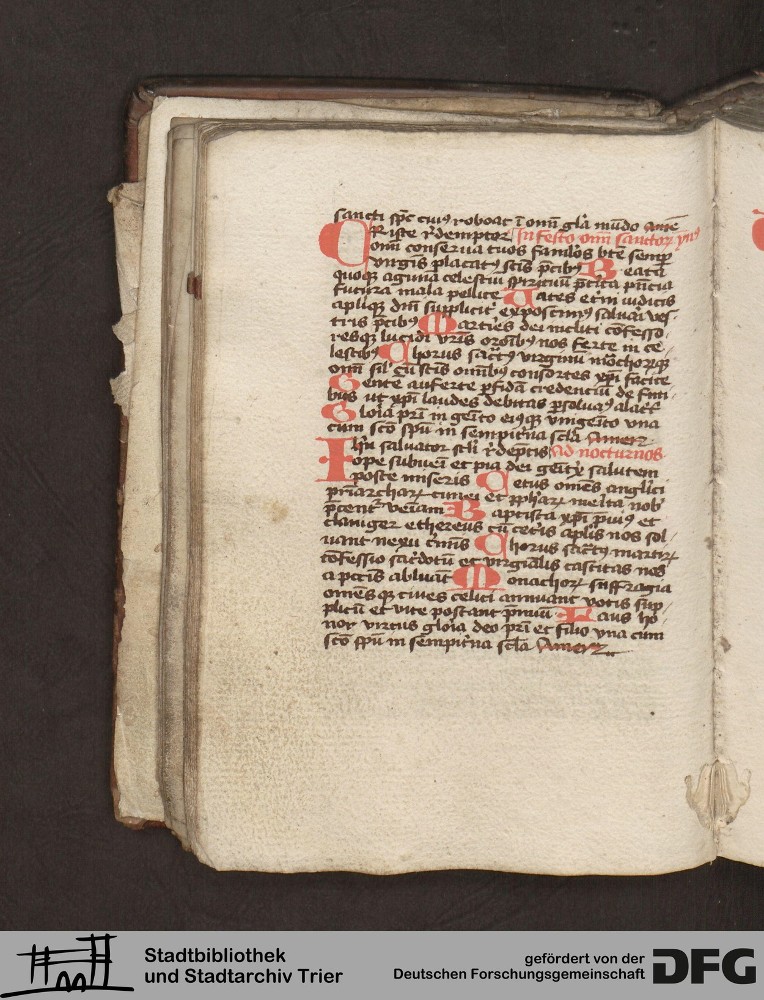 sancti spc cuiꝰ roborat ī omī gl̄a mūdo Amē
Criste r̄demptor In festo omī sanctoꝝ ymꝰ
omī conserua tuos famlos bt̄e semꝑ
virgīs placatꝰ sc̄is p̄cibꝰ Beata
quoqꝫ agmina celestiū spirituū p̄terita p̄ntia
futura mala pellite Uates et̄ni iudicis
apliqꝫ dn̄i supplicit̄ exposcimꝰ saluari ves-
tris p̄cibꝰ Martires dei incliti cōfesso-
resqꝫ lucidi vr̄is orōibꝰ nos ferte in ce-
lestibꝰ Chorus sāctꝰ virginū mōchorqꝫ
omī sil̄ cū sc̄is omībꝰ consortes xp̄i facite
Gente auferte ꝑfidā credenciū de fini-
bus ut xp̄i laudes debitas ꝑsoluaꝰ alacr̄
Gloia pr̄i in gēito eiꝰqꝫ vnigēito vna
cum sc̄o spū in sempit̄na sc̄la Amen
Ihū saluator scl̄i r̄dēptis Ad nocturnos
ope subueni et pia dei geītx̄ salutem
poste miseris Cetus omēs angl̄ici
pr̄iarchaꝝ cunei et ꝓphāꝝ merita nob̄
p̄cent̄ veīam Baptista xp̄i p̄uiꝰ et
clauiger ethereus cū cet̄is ap̄lis nos sol-
uant nexu c̄mīs Chorus sāctꝰ martirꝝ
cōfessio sac̄dotū et virgiālis castitas nos
a pccīs abluāt Monachoꝝ suffragia
omēsqꝫ ciues celici annuant votis sup-
plicū et vite poscant p̄miū Laus ho-
nor virtus gloīa deo pr̄i et filio vna cum
sc̄o spū in sempit̄na sc̄la Amen
Stadtbibliothek
und Stadtarchiv Trier
gefördert von der
Deutschen Forschungsgemeinschaft
DFG